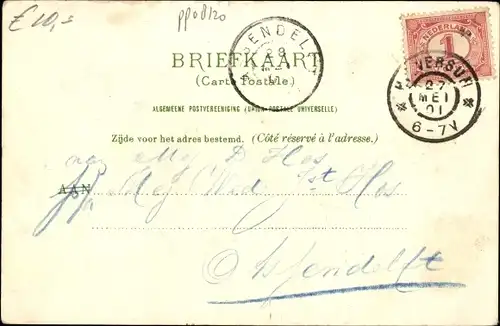 € 10,-
pp08120
ENDEL
28
BRIEFKAART
(Carte Postale.)
NEDERLAND
1
HILVERSUM
27
MEI
01
6-7V
ALGEMEENE POSTVEREENIGING (UNION POSTALE UNIVERSELLE)
Zijde voor het adres bestemd. (Côté réservé à l'adresse.)
D Hos
AAN
Wed Hos
Assendelft